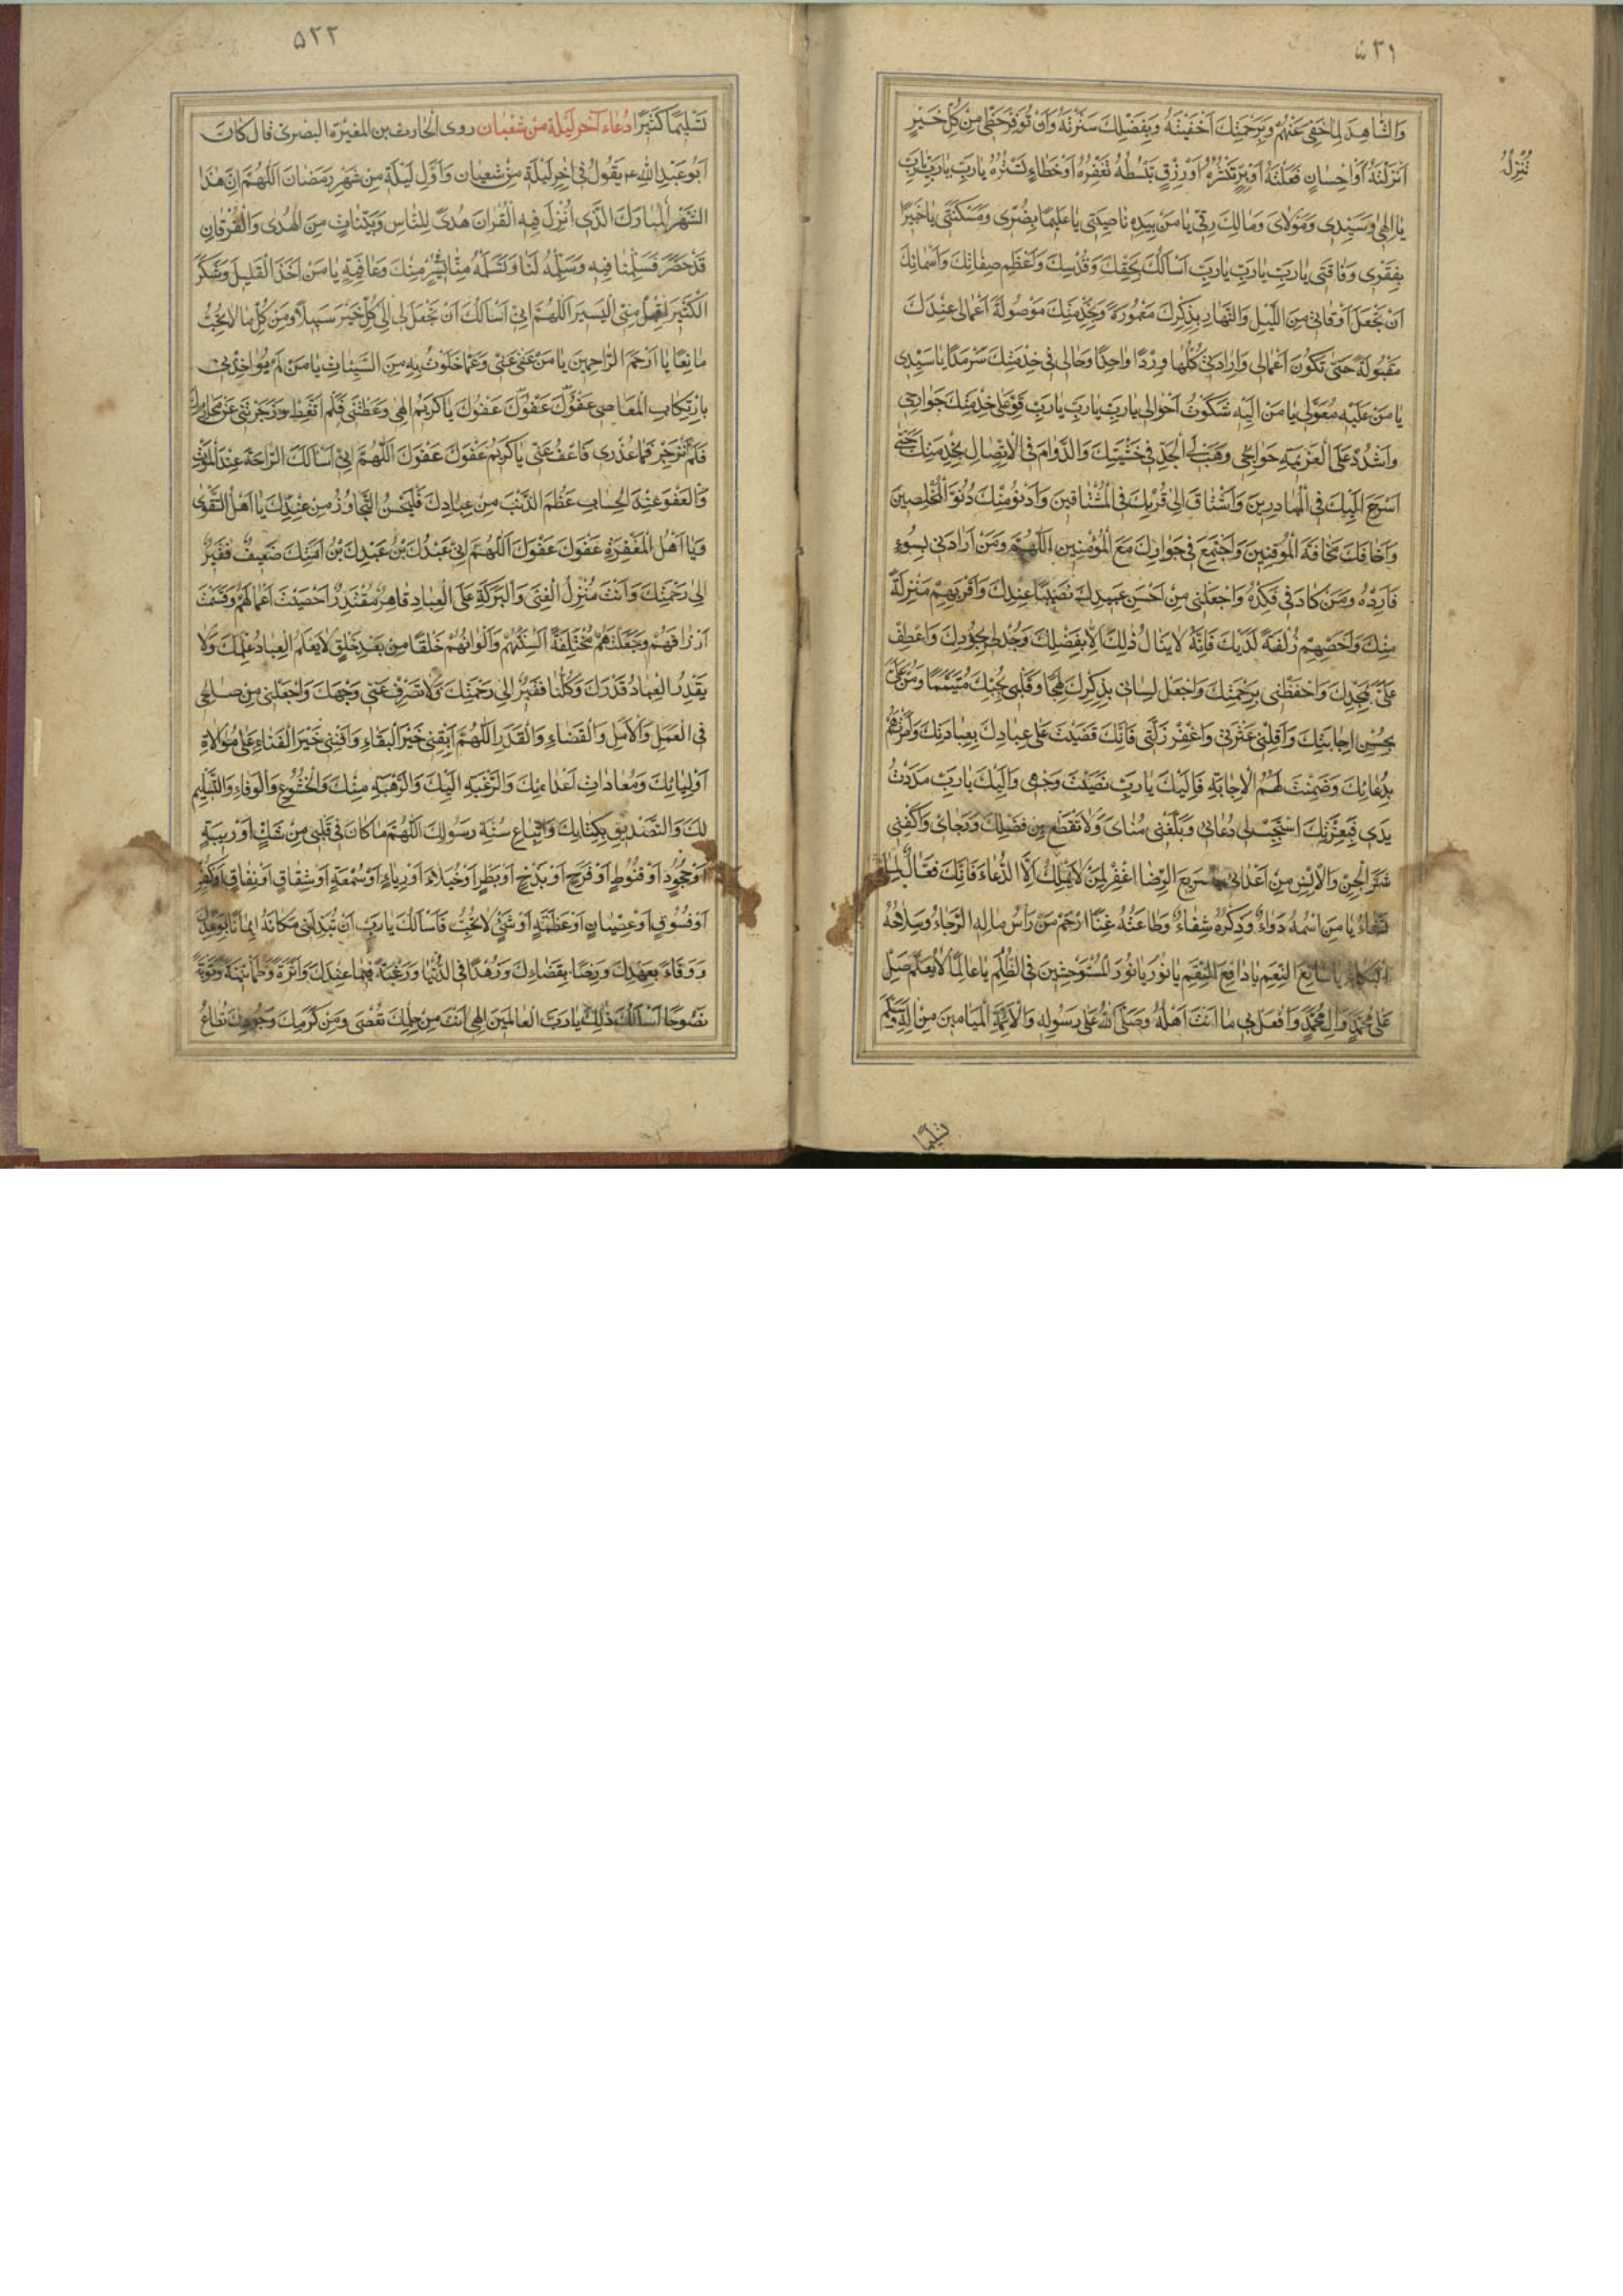 ۵۲۱
وَالشَّاهِدَ لِمَا خَفِيَ عَنْهُمْ وَبِرَحْمَتِكَ اَخْفَيْتَهُ وَبِفَضْلِكَ سَتَرْتَهُ وَاَنْ تُوَفِّرَ حَظّي مِنْ كُلِّ خَيْرٍ
اَنْزَلْتَهُ اَوْ اِحْسَانٍ فَضَّلْتَهُ اَوْ بِرٍّ تَنْشُرُهُ اَوْ رِزْقٍ تَبْسُطُهُ تَغْفِرُهُ اَوْ خَطَاءٍ تَسْتُرُهُ يَارَبِّ يَارَبِّ يَارَبِّ
تُنْزِلُ
يَا اِلٰهي وَسَيِّدي وَمَوْلَايَ وَمَالِكَ رِقّي يَا مَنْ بِيَدِهِ نَاصِيَتي يَا عَليمًا بِضُرّي وَمَسْكَنَتي يَا خَبيرًا
بِفَقْري وَفَاقَتي يَارَبِّ يَارَبِّ يَارَبِّ اَسْاَلُكَ بِحَقِّكَ وَقُدْسِكَ وَاَعْظَمِ صِفَاتِكَ وَاَسْمَائِكَ
اَنْ تَجْعَلَ اَوْقَاتي مِنَ اللَّيْلِ وَالنَّهَارِ بِذِكْرِكَ مَعْمُورَةً وَبِخِدْمَتِكَ مَوْصُولَةً اَعْمَالي عِنْدَكَ
مَقْبُولَةً حَتّى تَكُونَ اَعْمَالي وَاِرَادَتي كُلُّهَا وِرْدًا وَاحِدًا وَحَالي في خِدْمَتِكَ سَرْمَدًا يَا سَيِّدي
يَا مَنْ عَلَيْهِ مُعَوَّلي يَا مَنْ اِلَيْهِ شَكَوْتُ اَحْوَالي يَارَبِّ يَارَبِّ يَارَبِّ قَوِّ عَلى خِدْمَتِكَ جَوَارِحي
وَاشْدُدْ عَلَى الْعَزيمَةِ جَوَانِحي وَهَبْ لِيَ الْجِدَّ في خَشْيَتِكَ وَالدَّوَامَ فِي الْاِتِّصَالِ بِخِدْمَتِكَ حَتّى
اَسْرَحَ اِلَيْكَ فِي الْمُبَادِرينَ وَاَشْتَاقَ اِلى قُرْبِكَ فِي الْمُشْتَاقينَ وَاَدْنُوَ مِنْكَ دُنُوَّ الْمُخْلِصينَ
وَاَخَافَكَ مَخَافَةَ الْمُوقِنينَ وَاَجْتَمِعَ في جِوَارِكَ مَعَ الْمُؤْمِنينَ اَللّٰهُمَّ وَمَنْ اَرَادَني بِسُوءٍ
فَاَرِدْهُ وَمَنْ كَادَني فَكِدْهُ وَاجْعَلْني مِنْ اَحْسَنِ عَبيدِكَ نَصيبًا عِنْدَكَ وَاَقْرَبِهِمْ مَنْزِلَةً
مِنْكَ وَاَخَصِّهِمْ زُلْفَةً لَدَيْكَ فَاِنَّهُ لَا يُنَالُ ذٰلِكَ اِلَّا بِفَضْلِكَ وَجُدْ لي بِجُودِكَ وَاعْطِفْ
عَلَيَّ بِمَجْدِكَ وَاحْفَظْني بِرَحْمَتِكَ وَاجْعَلْ لِسَاني بِذِكْرِكَ لَهِجًا وَقَلْبي بِحُبِّكَ مُتَيَّمًا وَمُنَّ عَلَيَّ
بِحُسْنِ اِجَابَتِكَ وَاَقِلْني عَثْرَتي وَاغْفِرْ زَلَّتي فَاِنَّكَ قَضَيْتَ عَلى عِبَادِكَ بِعِبَادَتِكَ وَاَمَرْتَهُمْ
بِدُعَائِكَ وَضَمِنْتَ لَهُمُ الْاِجَابَةَ فَاِلَيْكَ يَارَبِّ نَصَبْتُ وَجْهي وَاِلَيْكَ يَارَبِّ مَدَدْتُ
يَدي فَبِعِزَّتِكَ اسْتَجِبْ لي دُعَائي وَبَلِّغْني مُنَايَ وَلَا تَقْطَعْ مِنْ فَضْلِكَ رَجَايَ وَاكْفِني
شَرَّ الْجِنِّ وَالْاِنْسِ مِنْ اَعْدَائي يَا سَريعَ الرِّضَا اغْفِرْ لِمَنْ لَا يَمْلِكُ اِلَّا الدُّعَاءَ فَاِنَّكَ فَعَّالٌ لِمَا
تَشَاءُ يَا مَنِ اسْمُهُ دَوَاءٌ وَذِكْرُهُ شِفَاءٌ وَطَاعَتُهُ غِنًا ارْحَمْ مَنْ رَأْسُ مَالِهِ الرَّجَاءُ وَسِلَاحُهُ
الْبُكَاءُ يَا سَابِغَ النِّعَمِ يَا دَافِعَ النِّقَمِ يَا نُورُ يَا نُورَ الْمُسْتَوْحِشينَ فِي الظُّلَمِ يَا عَالِمًا لَا يُعَلَّمُ صَلِّ
عَلى مُحَمَّدٍ وَالِ مُحَمَّدٍ وَافْعَلْ بي مَا اَنْتَ اَهْلُهُ وَصَلَّى اللهُ عَلى رَسُولِهِ وَالْاَئِمَّةِ الْمَيَامينَ مِنْ الِهِ وَسَلَّمَ
تسليما
۵۲۲
تَسْليمًا كَثيرًا دُعَاء آخر لَيلَة مِنْ شَعْبَان رَوى الْحَارِثُ بن المُغيرَة البَصْري قَالَ كَانَ
اَبُو عَبْدِ اللهِ ع يَقُولُ في اخِرِ لَيْلَةٍ مِنْ شَعْبَانَ وَاَوَّلِ لَيْلَةٍ مِنْ شَهْرِ رَمَضَانَ اَللّٰهُمَّ اِنَّ هٰذَا
الشَّهْرَ الْمُبَارَكَ الَّذي اُنْزِلَ فيهِ الْقُرْانُ هُدًى لِلنَّاسِ وَبَيِّنَاتٍ مِنَ الْهُدى وَالْفُرْقَانِ
قَدْ حَضَرَ فَسَلِّمْنَا فيهِ وَسَلِّمْهُ لَنَا وَتَسَلَّمْهُ مِنَّا بِيُسْرٍ مِنْكَ وَعَافِيَةٍ يَا مَنْ اَخَذَ الْقَليلَ وَشَكَرَ
الْكَثيرَ اِقْبَلْ مِنِّي الْيَسيرَ اَللّٰهُمَّ اِنّي اَسْاَلُكَ اَنْ تَجْعَلَ لي اِلى كُلِّ خَيْرٍ سَبيلًا وَمِنْ كُلِّ مَا لَا تُحِبُّ
مَانِعًا يَا اَرْحَمَ الرَّاحِمينَ يَا مَنْ عَفى عَنّي وَعَمَّا خَلَوْتُ بِهِ مِنَ السَّيِّئَاتِ يَا مَنْ لَمْ يُؤَاخِذْني
بِارْتِكَابِ الْمَعَاصي عَفْوَكَ عَفْوَكَ عَفْوَكَ يَا كَريمُ اِلٰهي وَعَظْتَني فَلَمْ اَتَّعِظْ وَزَجَرْتَني عَنْ مَحَارِمِكَ
فَلَمْ اَنْزَجِرْ فَمَا عُذْري فَاعْفُ عَنّي يَا كَريمُ عَفْوَكَ عَفْوَكَ اَللّٰهُمَّ اِنّي اَسْاَلُكَ الرَّاحَةَ عِنْدَ الْمَوْتِ
وَالْعَفْوَ عِنْدَ الْحِسَابِ عَظُمَ الذَّنْبُ مِنْ عِبَادِكَ فَلْيَحْسُنِ التَّجَاوُزُ مِنْ عِنْدِكَ يَا اَهْلَ التَّقْوى
وَيَا اَهْلَ الْمَغْفِرَةِ عَفْوَكَ عَفْوَكَ اَللّٰهُمَّ اِنّي عَبْدُكَ بْنُ عَبْدِكَ بْنُ اَمَتِكَ ضَعيفٌ فَقيرٌ
اِلى رَحْمَتِكَ وَاَنْتَ مُنْزِلُ الْغِنى وَالْبَرَكَةِ عَلَى الْعِبَادِ قَاهِرٌ مُقْتَدِرٌ اَحْصَيْتَ اَعْمَالَهُمْ وَقَسَمْتَ
اَرْزَاقَهُمْ وَجَعَلْتَهُمْ مُخْتَلِفَةً اَلْسِنَتُهُمْ وَاَلْوَانُهُمْ خَلْقًا مِنْ بَعْدِ خَلْقٍ لَا يَعْلَمُ الْعِبَادُ عِلْمَكَ وَلَا
يَقْدِرُ الْعِبَادُ قَدْرَكَ وَكُلُّنَا فَقيرٌ اِلى رَحْمَتِكَ وَلَا تَصْرِفْ عَنّي وَجْهَكَ وَاجْعَلْني مِنْ صَالِحي
فِي الْعَمَلِ وَالْاَمَلِ وَالْقَضَاءِ وَالْقَدَرِ اَللّٰهُمَّ اَبْقِني خَيْرَ الْبَقَاءِ وَاَفْنِني خَيْرَ الْفَنَاءِ عَلى مُوَالَاةِ
اَوْلِيَائِكَ وَمُعَادَاتِ اَعْدَائِكَ وَالرَّغْبَةِ اِلَيْكَ وَالرَّهْبَةِ مِنْكَ وَالْخُشُوعِ وَالْوَفَاءِ وَالتَّسْليمِ
لَكَ وَالتَّصْديقِ بِكِتَابِكَ وَاتِّبَاعِ سُنَّةِ رَسُولِكَ اَللّٰهُمَّ مَا كَانَ في قَلْبي مِنْ شَكٍّ اَوْ ريبَةٍ
اَوْ جُحُودٍ اَوْ قُنُوطٍ اَوْ فَرَحٍ اَوْ بَذَخٍ اَوْ بَطَرٍ اَوْ خُيَلَاءَ اَوْ رِيَاءٍ اَوْ سُمْعَةٍ اَوْ شِقَاقٍ اَوْ نِفَاقٍ اَوْ كُفْرٍ
اَوْ فُسُوقٍ اَوْ عِصْيَانٍ اَوْ عَظَمَةٍ اَوْ شَيْءٍ لَا تُحِبُّ فَاَسْاَلُكَ يَارَبِّ اَنْ تُبَدِّلَني مَكَانَهُ ايمَانًا بِوَعْدِكَ
وَوَفَاءً بِعَهْدِكَ وَرِضًا بِقَضَاءِكَ وَزُهْدًا فِي الدُّنْيَا وَرَغْبَةً فيمَا عِنْدَكَ وَاَثَرَةً وَطُمَاْنينَةً وَتَوْبَةً
نَصُوحًا اَسْاَلُكَ ذٰلِكَ يَارَبَّ الْعَالَمينَ اِلٰهي اَنْتَ مِنْ حِلْمِكَ تُعْصى وَمِنْ كَرَمِكَ وَجُودِكَ تُطَاعُ